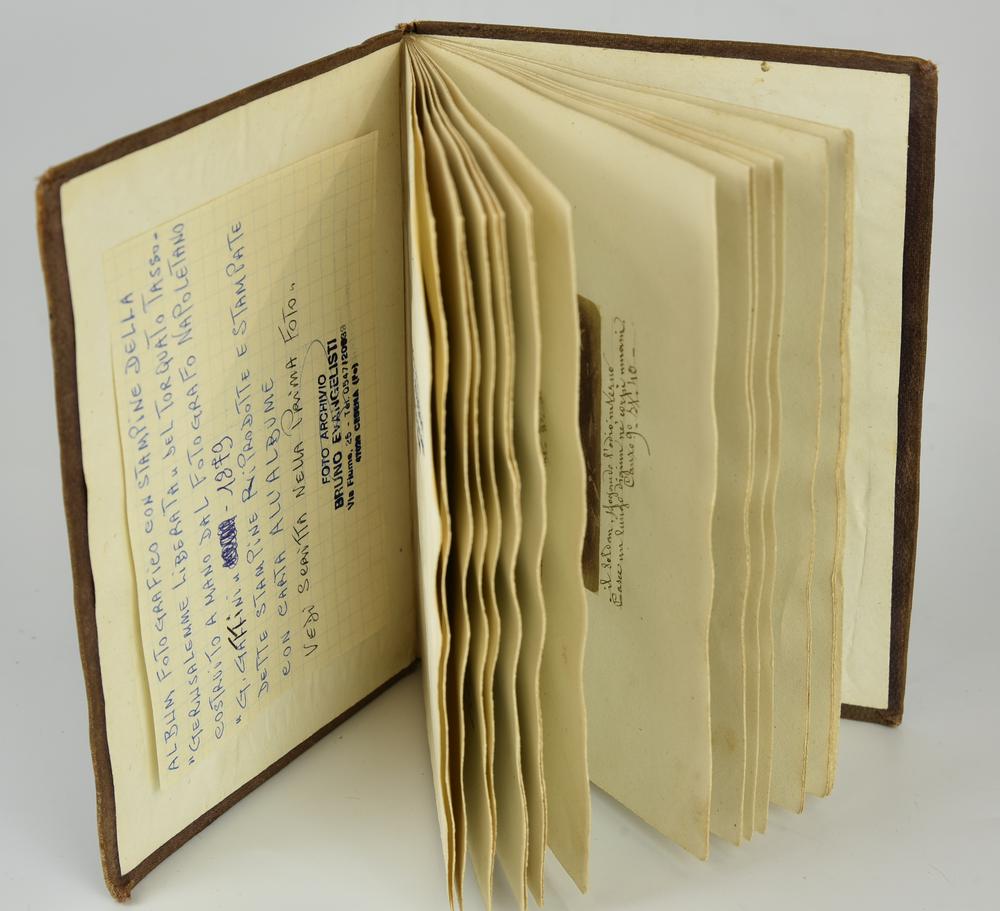 ALBUM FOTOGRAFICO CON STAMPINE DELLA
"GERUSALEMME LIBERATA" DEL TORQUATO TASSO-
COSTRUITO A MANO DAL FOTOGRAFO NAPOLETANO
"G. GAFFINI" - 1879
DETTE STAMPINE RIPRODOTTE E STAMPATE
CON CARTA ALL'ALBUME
VEDI SCRITTA NELLA PRIMA FOTO"
FOTO ARCHIVIO
BRUNO EVANGELISTI
Via Fiume, 25 - Tel. 0547/20
47023 CESENA (Fo)
il Soldan, sfogando l'odio interno
Pasce un lungo digiun ne' corpi umani
Canto 9°